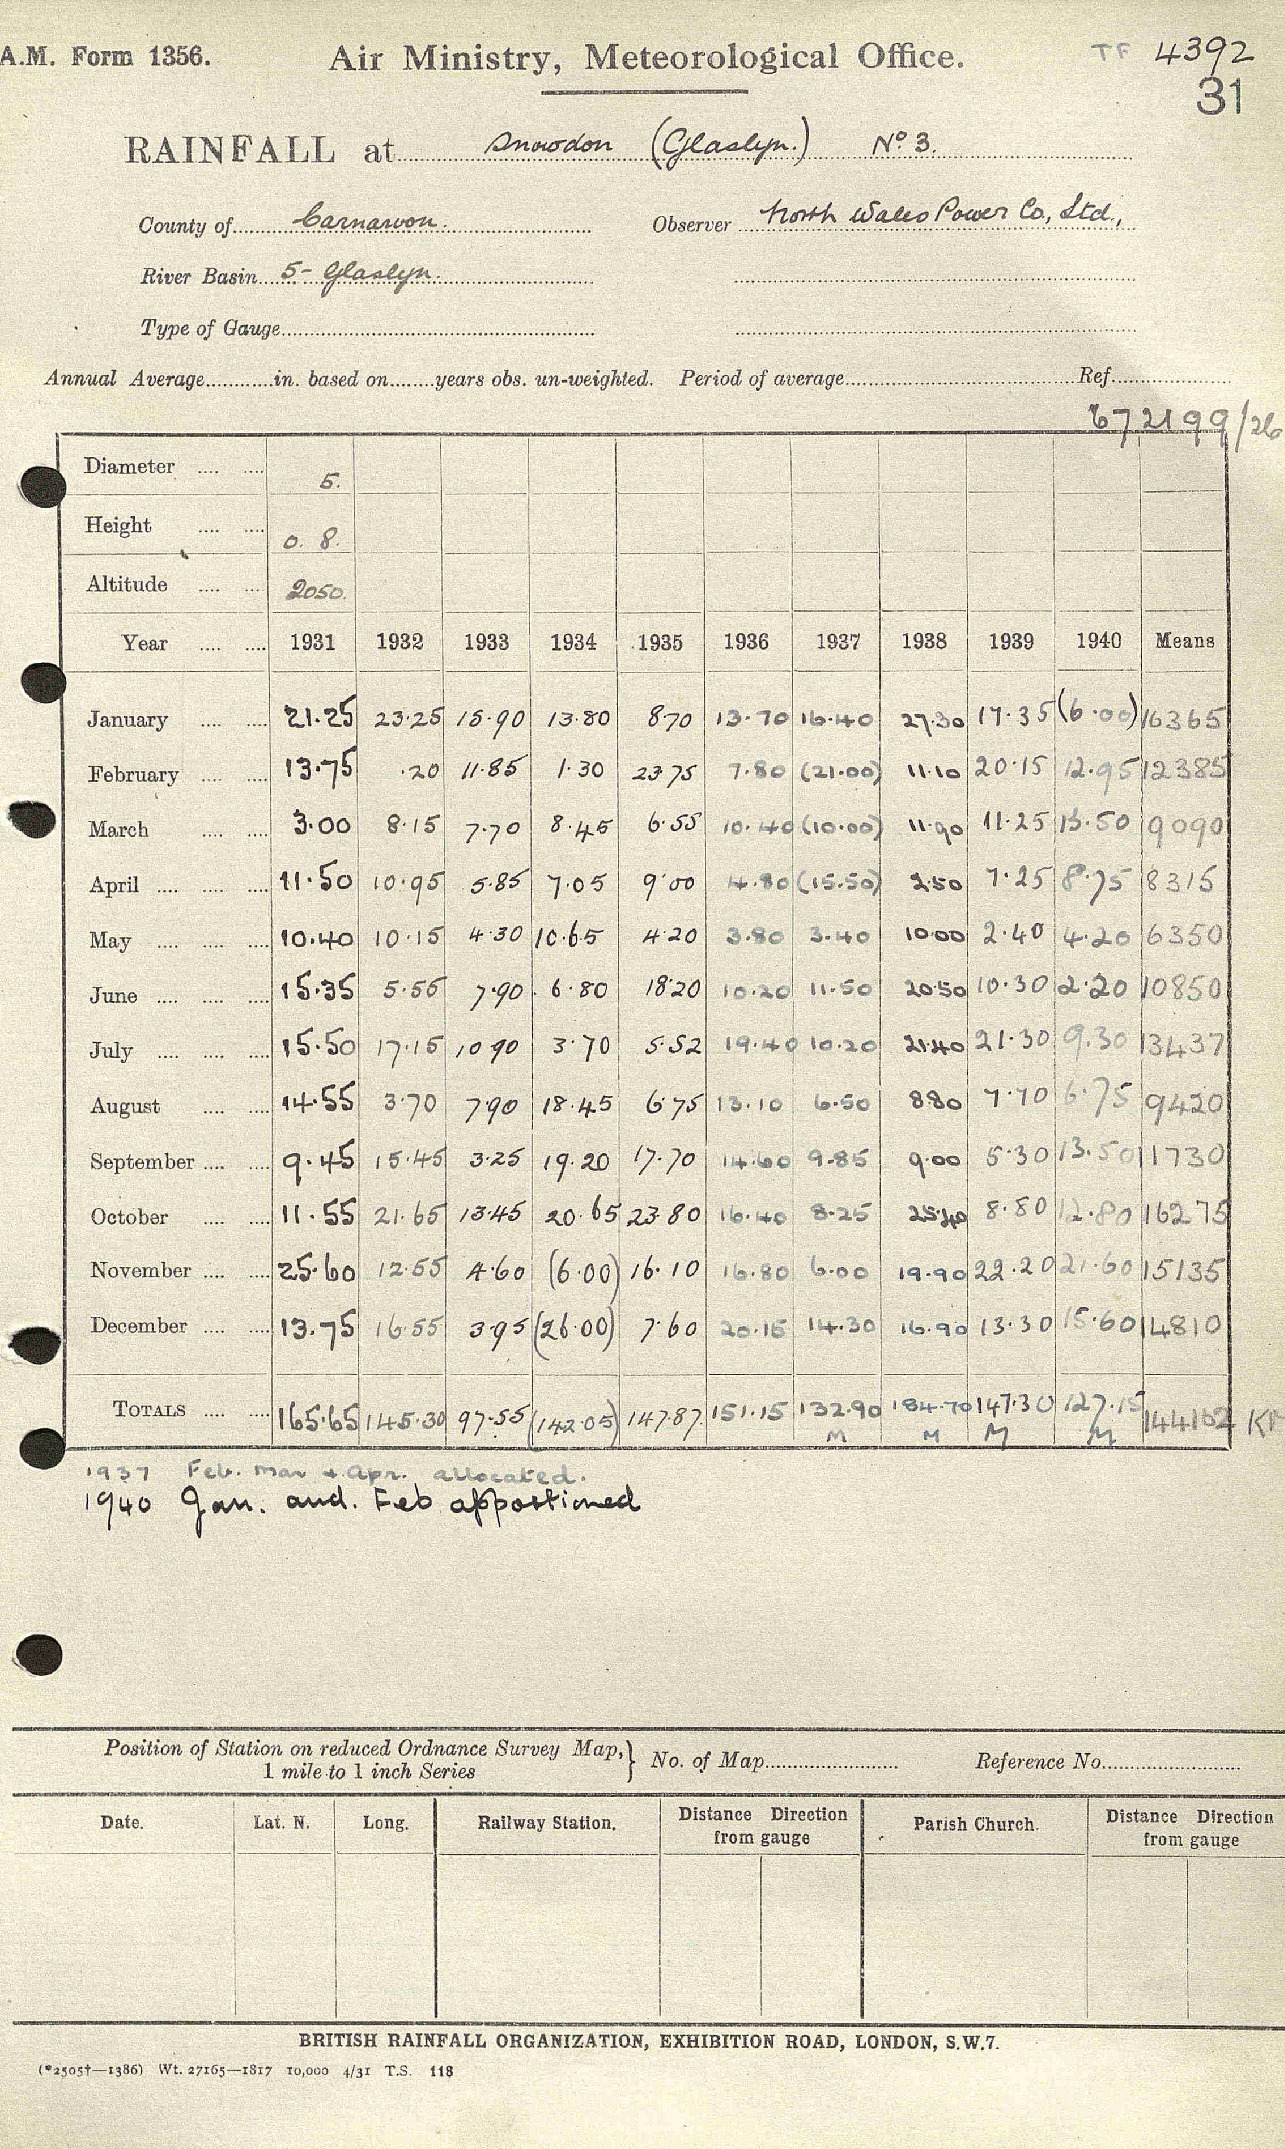 A.M. Form 1356. Air Ministry, Meteorological Office. TF 4392
31
RAINFALL at Snowdon (Glaslyn.) No 3.
County of Carnarvon. Observer North Wales Power Co, Ltd.,
River Basin 5- Glaslyn.
Type of Gauge
Annual Average in. based on years obs. un-weighted. Period of average Ref.
672199/26
Diameter 5.
Height 0. 8.
Altitude 2050.
Year 1931 1932 1933 1934 1935 1936 1937 1938 1939 1940 Means
January 21.25 23.25 15.90 13.80 8.70 13.70 16.40 27.30 17.35 (6.00) 16365
February 13.75 .20 11.85 1.30 23.75 7.80 (21.00) 11.10 20.15 12.95 12385
March 3.00 8.15 7.70 8.45 6.55 10.40 (10.00) 11.90 11.25 13.50 9090
April 11.50 10.95 5.85 7.05 9.00 4.80 (15.50) 2.50 7.25 8.75 8315
May 10.40 10.15 4.30 10.65 4.20 3.80 3.40 10.00 2.40 4.20 6350
June 15.35 5.55 7.90 6.80 18.20 10.20 11.50 20.50 10.30 2.20 10850
July 15.50 17.15 10.90 3.70 5.52 19.40 10.20 21.40 21.30 9.30 13437
August 14.55 3.70 7.90 18.45 6.75 13.10 6.50 8.80 7.70 6.75 9420
September 9.45 15.45 3.25 19.20 17.70 14.60 9.85 9.00 5.30 13.50 11730
October 11.55 21.65 13.45 20.65 23.80 16.40 8.25 25.40 8.80 12.80 16275
November 25.60 12.55 4.60 (6.00) 16.10 16.80 6.00 19.90 22.20 21.60 15135
December 13.75 16.55 3.95 (26.00) 7.60 20.15 14.30 16.90 13.30 15.60 14810
TOTALS 165.65 145.30 97.55 (142.05) 147.87 151.15 132.90 184.70 147.30 127.15 144162
M M M M
1937 Feb. Mar + Apr. allocated.
1940 Jan. and. Feb apportioned
Position of Station on reduced Ordnance Survey Map,} No. of Map Reference No.
1 mile to 1 inch Series
Date. Lat. N. Long. Railway Station. Distance Direction from gauge Parish Church. Distance Direction from gauge
BRITISH RAINFALL ORGANIZATION, EXHIBITION ROAD, LONDON, S.W.7.
(*2505†—1386) Wt. 27165—1817 10,000 4/31 T.S. 118